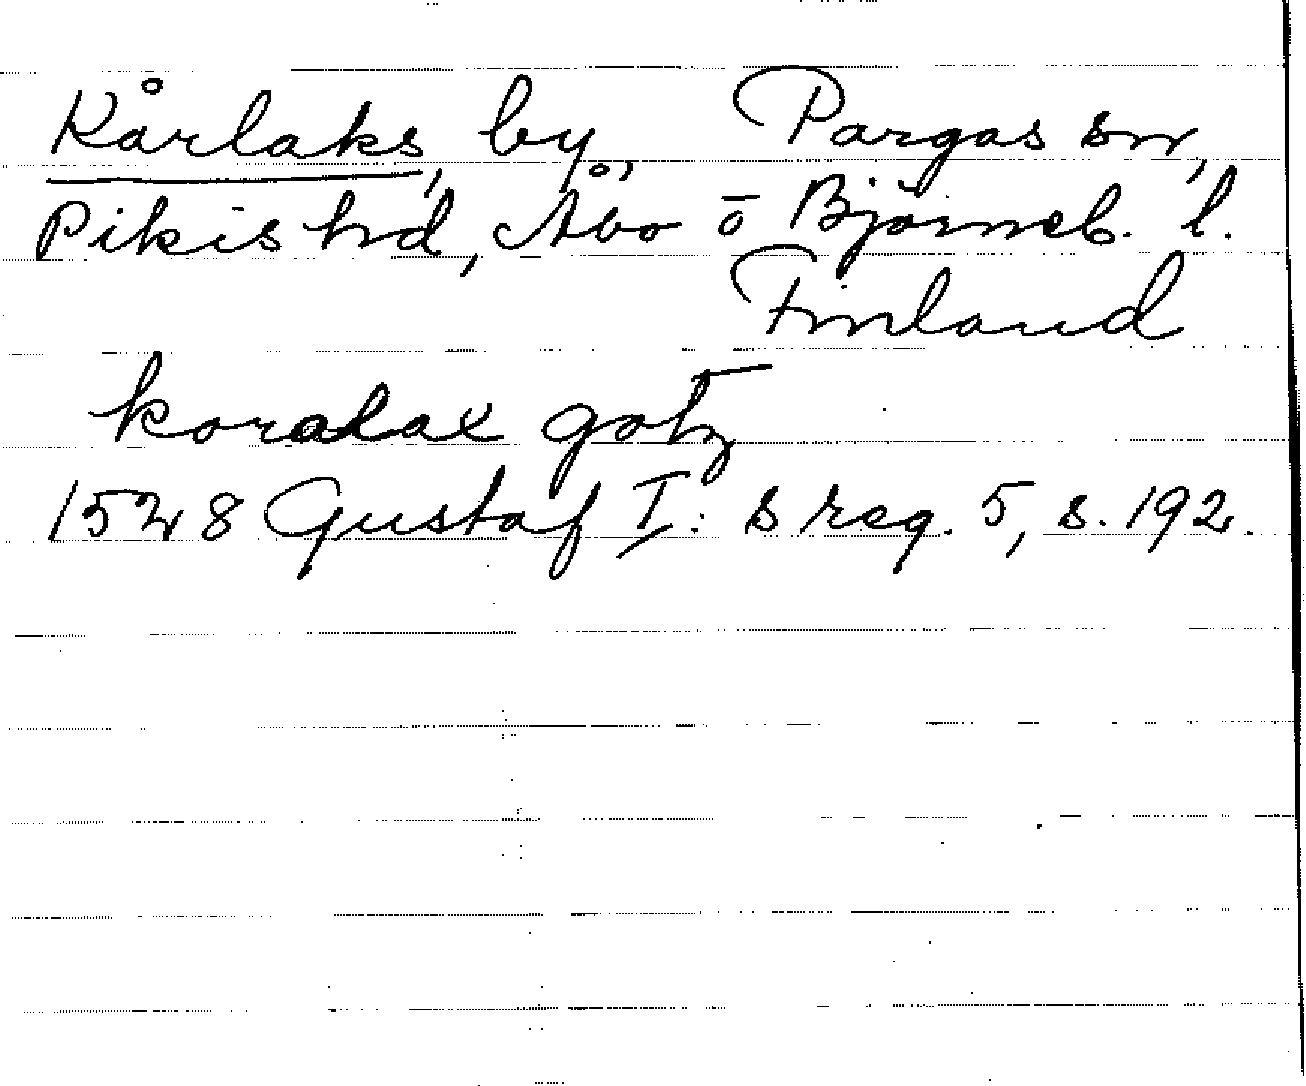 Kårlaks, by, Pargas sn,
Pikis hrd, Åbo o Björneb. l.
Finland
koralax gotz
1528 Gustaf I:s reg. 5, s. 192.